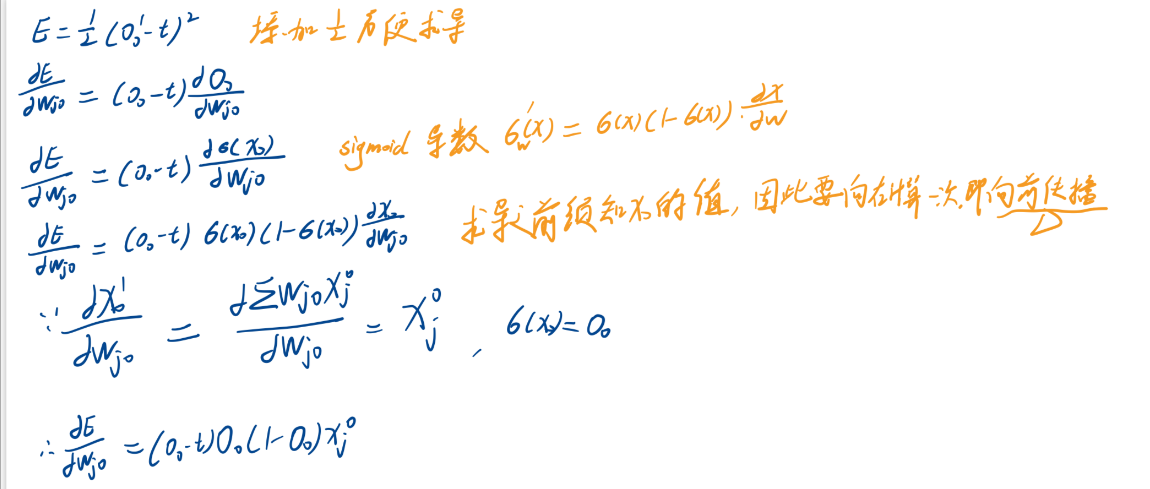 E = 1/2 (O₀¹ - t)² 增加 1/2 方便求导
∂E/∂Wj0 = (O₀ - t) ∂O₀/∂Wj0
∂E/∂Wj0 = (O₀ - t) ∂σ(X₀)/∂Wj0 sigmoid 导数 σ'w(x) = σ(x)(1 - σ(x)) · ∂X/∂W
∂E/∂Wj0 = (O₀ - t) σ(x₀)(1 - σ(x₀)) ∂X₀/∂Wj0 求导前须知 x₀ 的值, 因此要向在计算一次, 即向前传播
∵ ∂X₀¹/∂Wj0 = ∂ΣWj0Xj⁰/∂Wj0 = Xj⁰ , σ(x₀) = O₀
∴ ∂E/∂Wj0 = (O₀ - t)O₀(1 - O₀)Xj⁰